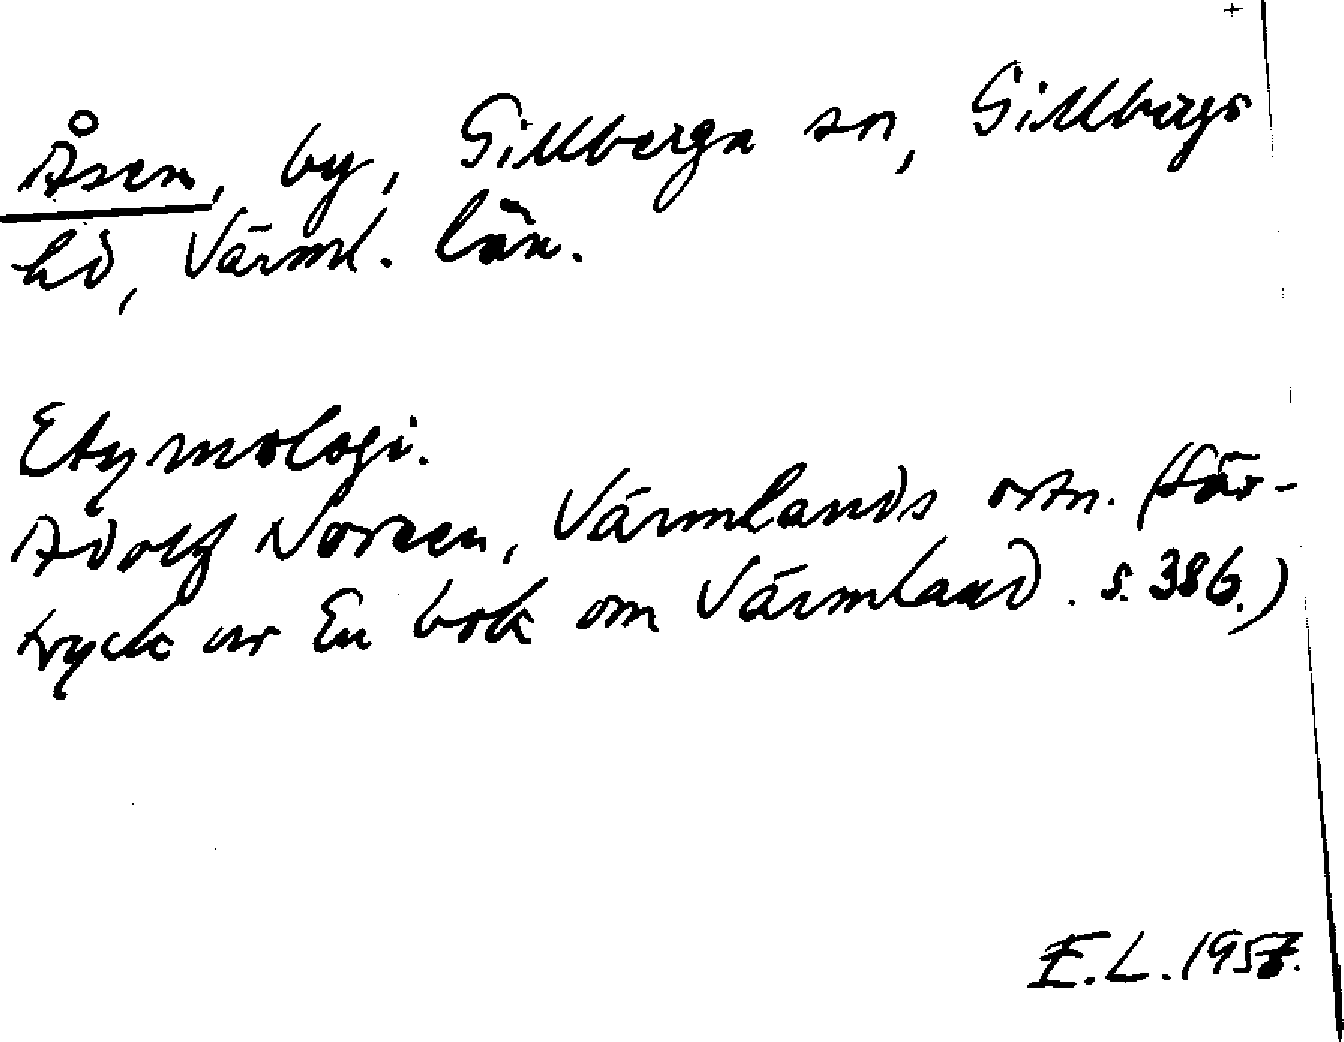 Åsen, by, Gillberga sn, Gillbergs
hd, Värml. län.
Etymologi.
Adolf Noreen, Värmlands ortn. (Sär-
tryck ur En bok om Värmland. s. 386.)
E.L. 1957.